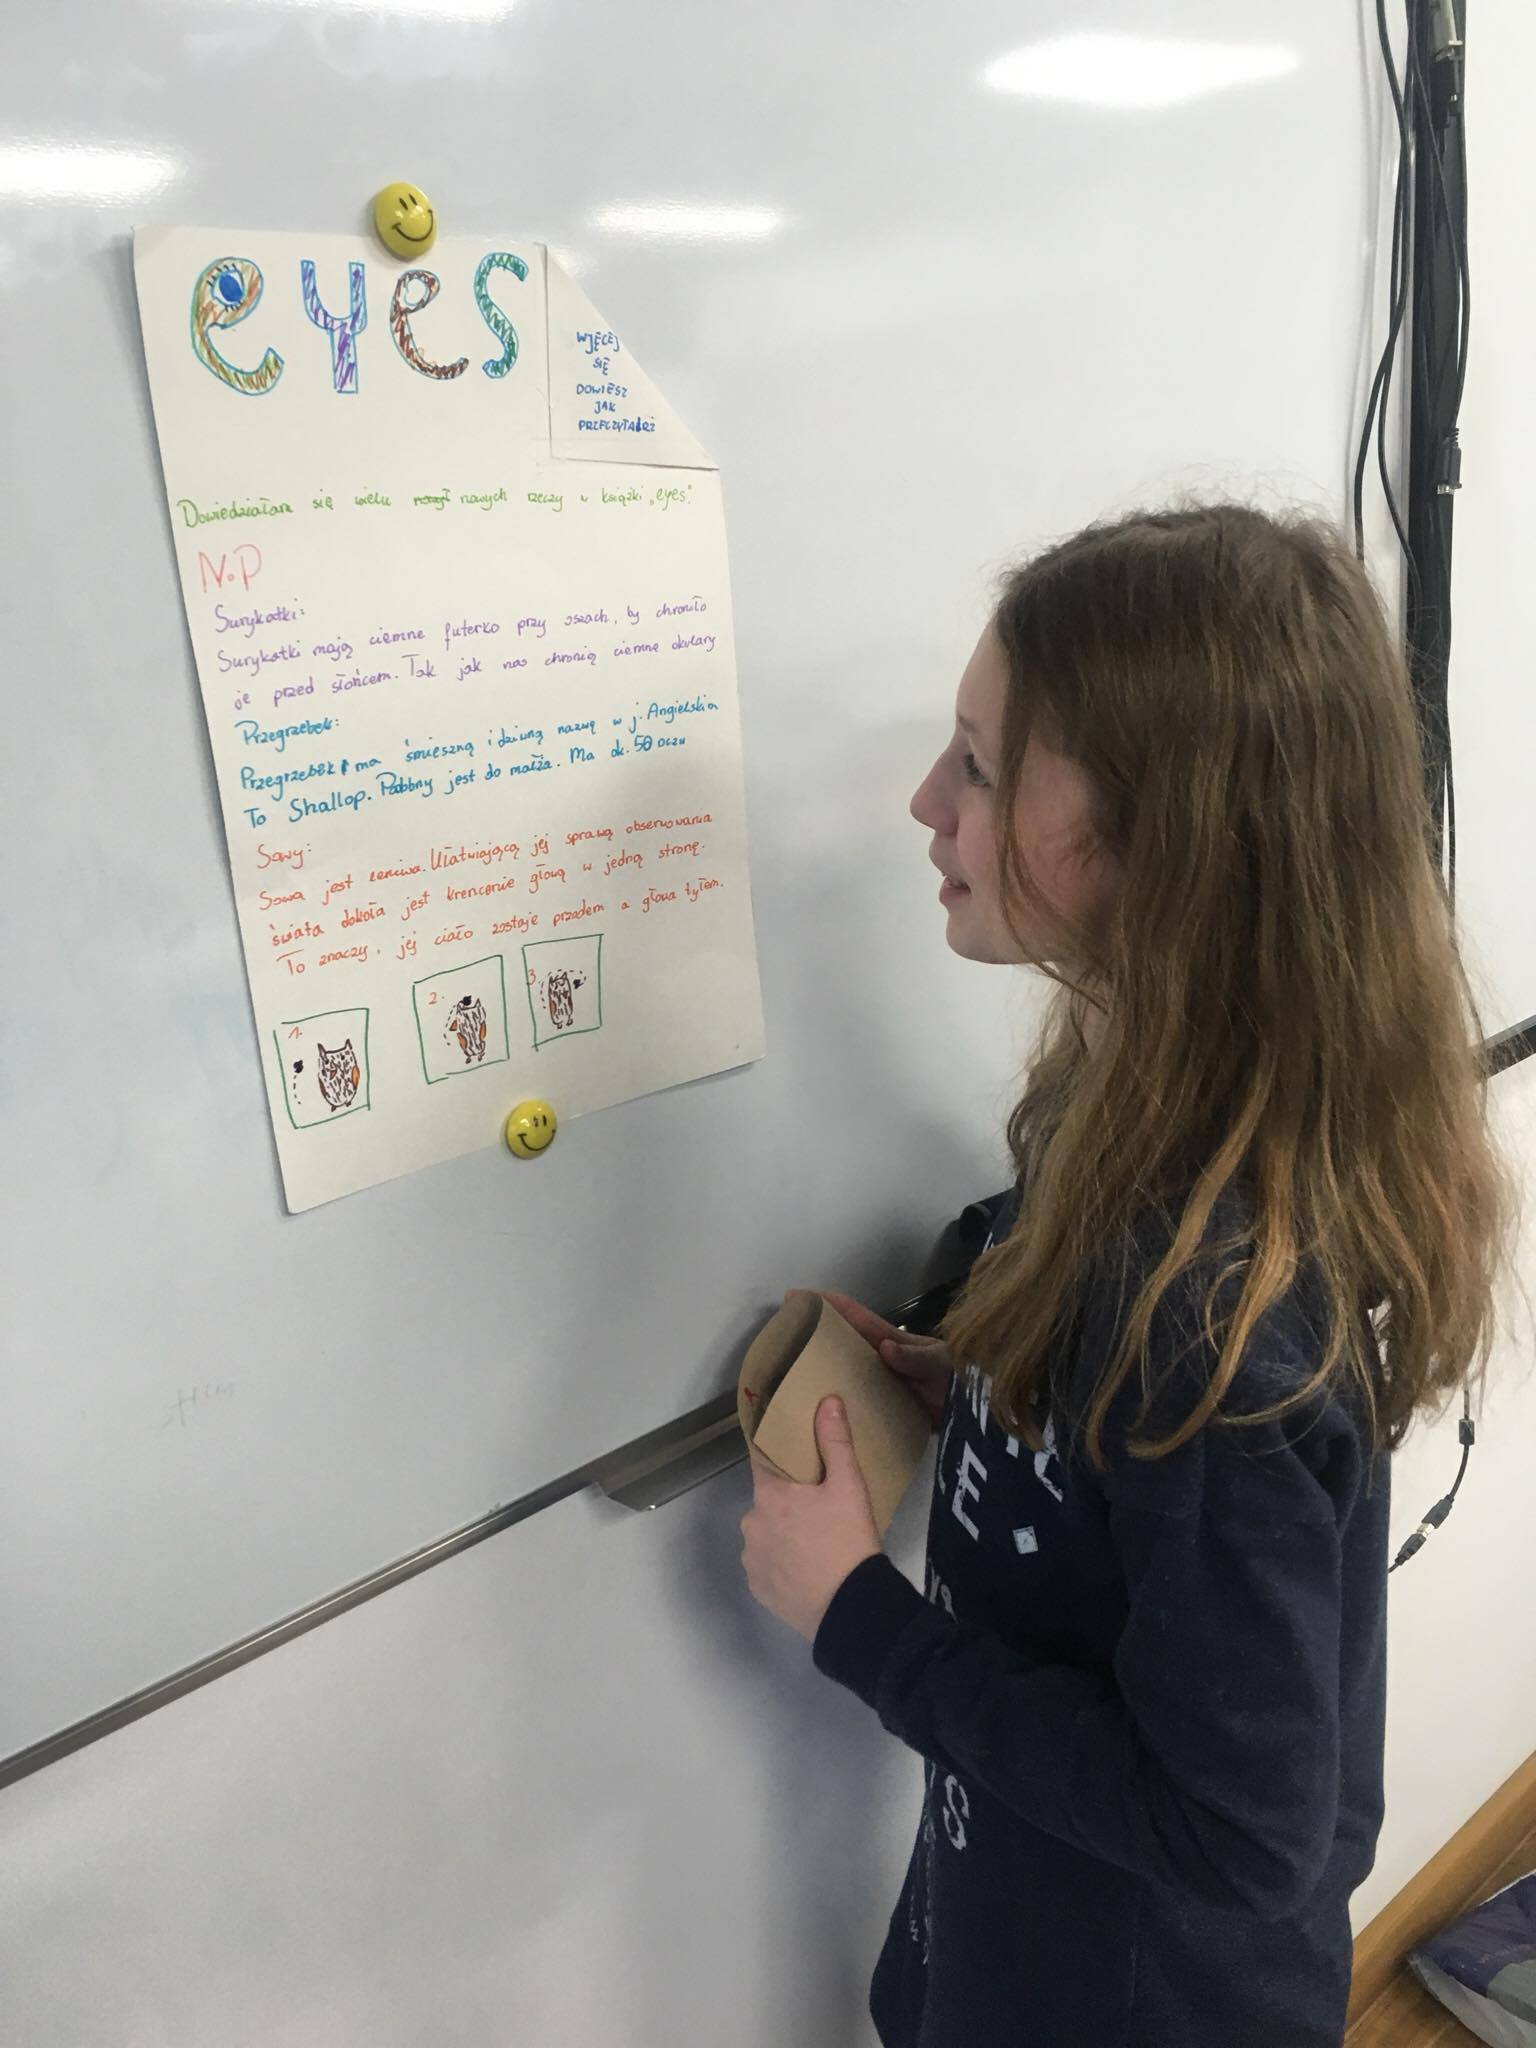 eyes
WJĘCEJ
SIĘ
DOWIESZ
JAK
PRZECZYTASZ
Dowiedziałam się wielu nowych rzeczy w książki „eyes".
N.P
Surykatki:
Surykatki mają ciemne futerko przy oszach, by chroniło
je przed słońcem. Tak jak nas chronią ciemne okulary
Przegrzebek:
Przegrzebek ma śmieszną i dziwną nazwę w j. Angielskim
To Shallop. Podobny jest do małża. Ma ok. 50 oczu
Sowy:
Sowa jest leniwa. Ułatwiającą jej sprawą obserwowania
świata dokoła jest krencenie głową w jedną stronę.
To znaczy, jej ciało zostaje przodem a głowa tyłem.
1.
2.
3.
E
S